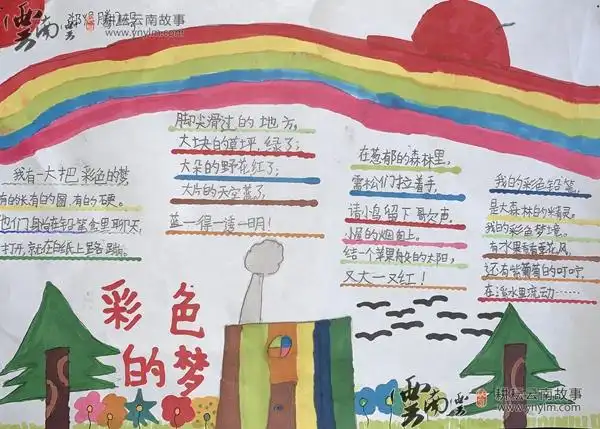 雲南
耕耘云南故事
www.ynylm.com
我有一大把彩色的梦,
有的长有的圆,有的硬。
他们躺在铅笔盒里聊天,
打开,就在白纸上
脚尖滑过的地方,
大块的草坪,绿了;
大朵的野花红了;
大片的天空蓝了,
蓝一得一透一明!
在葱郁的森林里,
雪松们拉着手,
请小鸟留下歌声。
小屋的烟囱上,
结一个苹果般的太阳,
又大一又红!
我的彩色铅笔,
是大森林的精灵。
我的彩色梦境,
有水果香
还有紫葡萄的叮咛,
在溪水里流动……
彩色
的梦
雲南
耕耘云南故事
www.ynylm.com